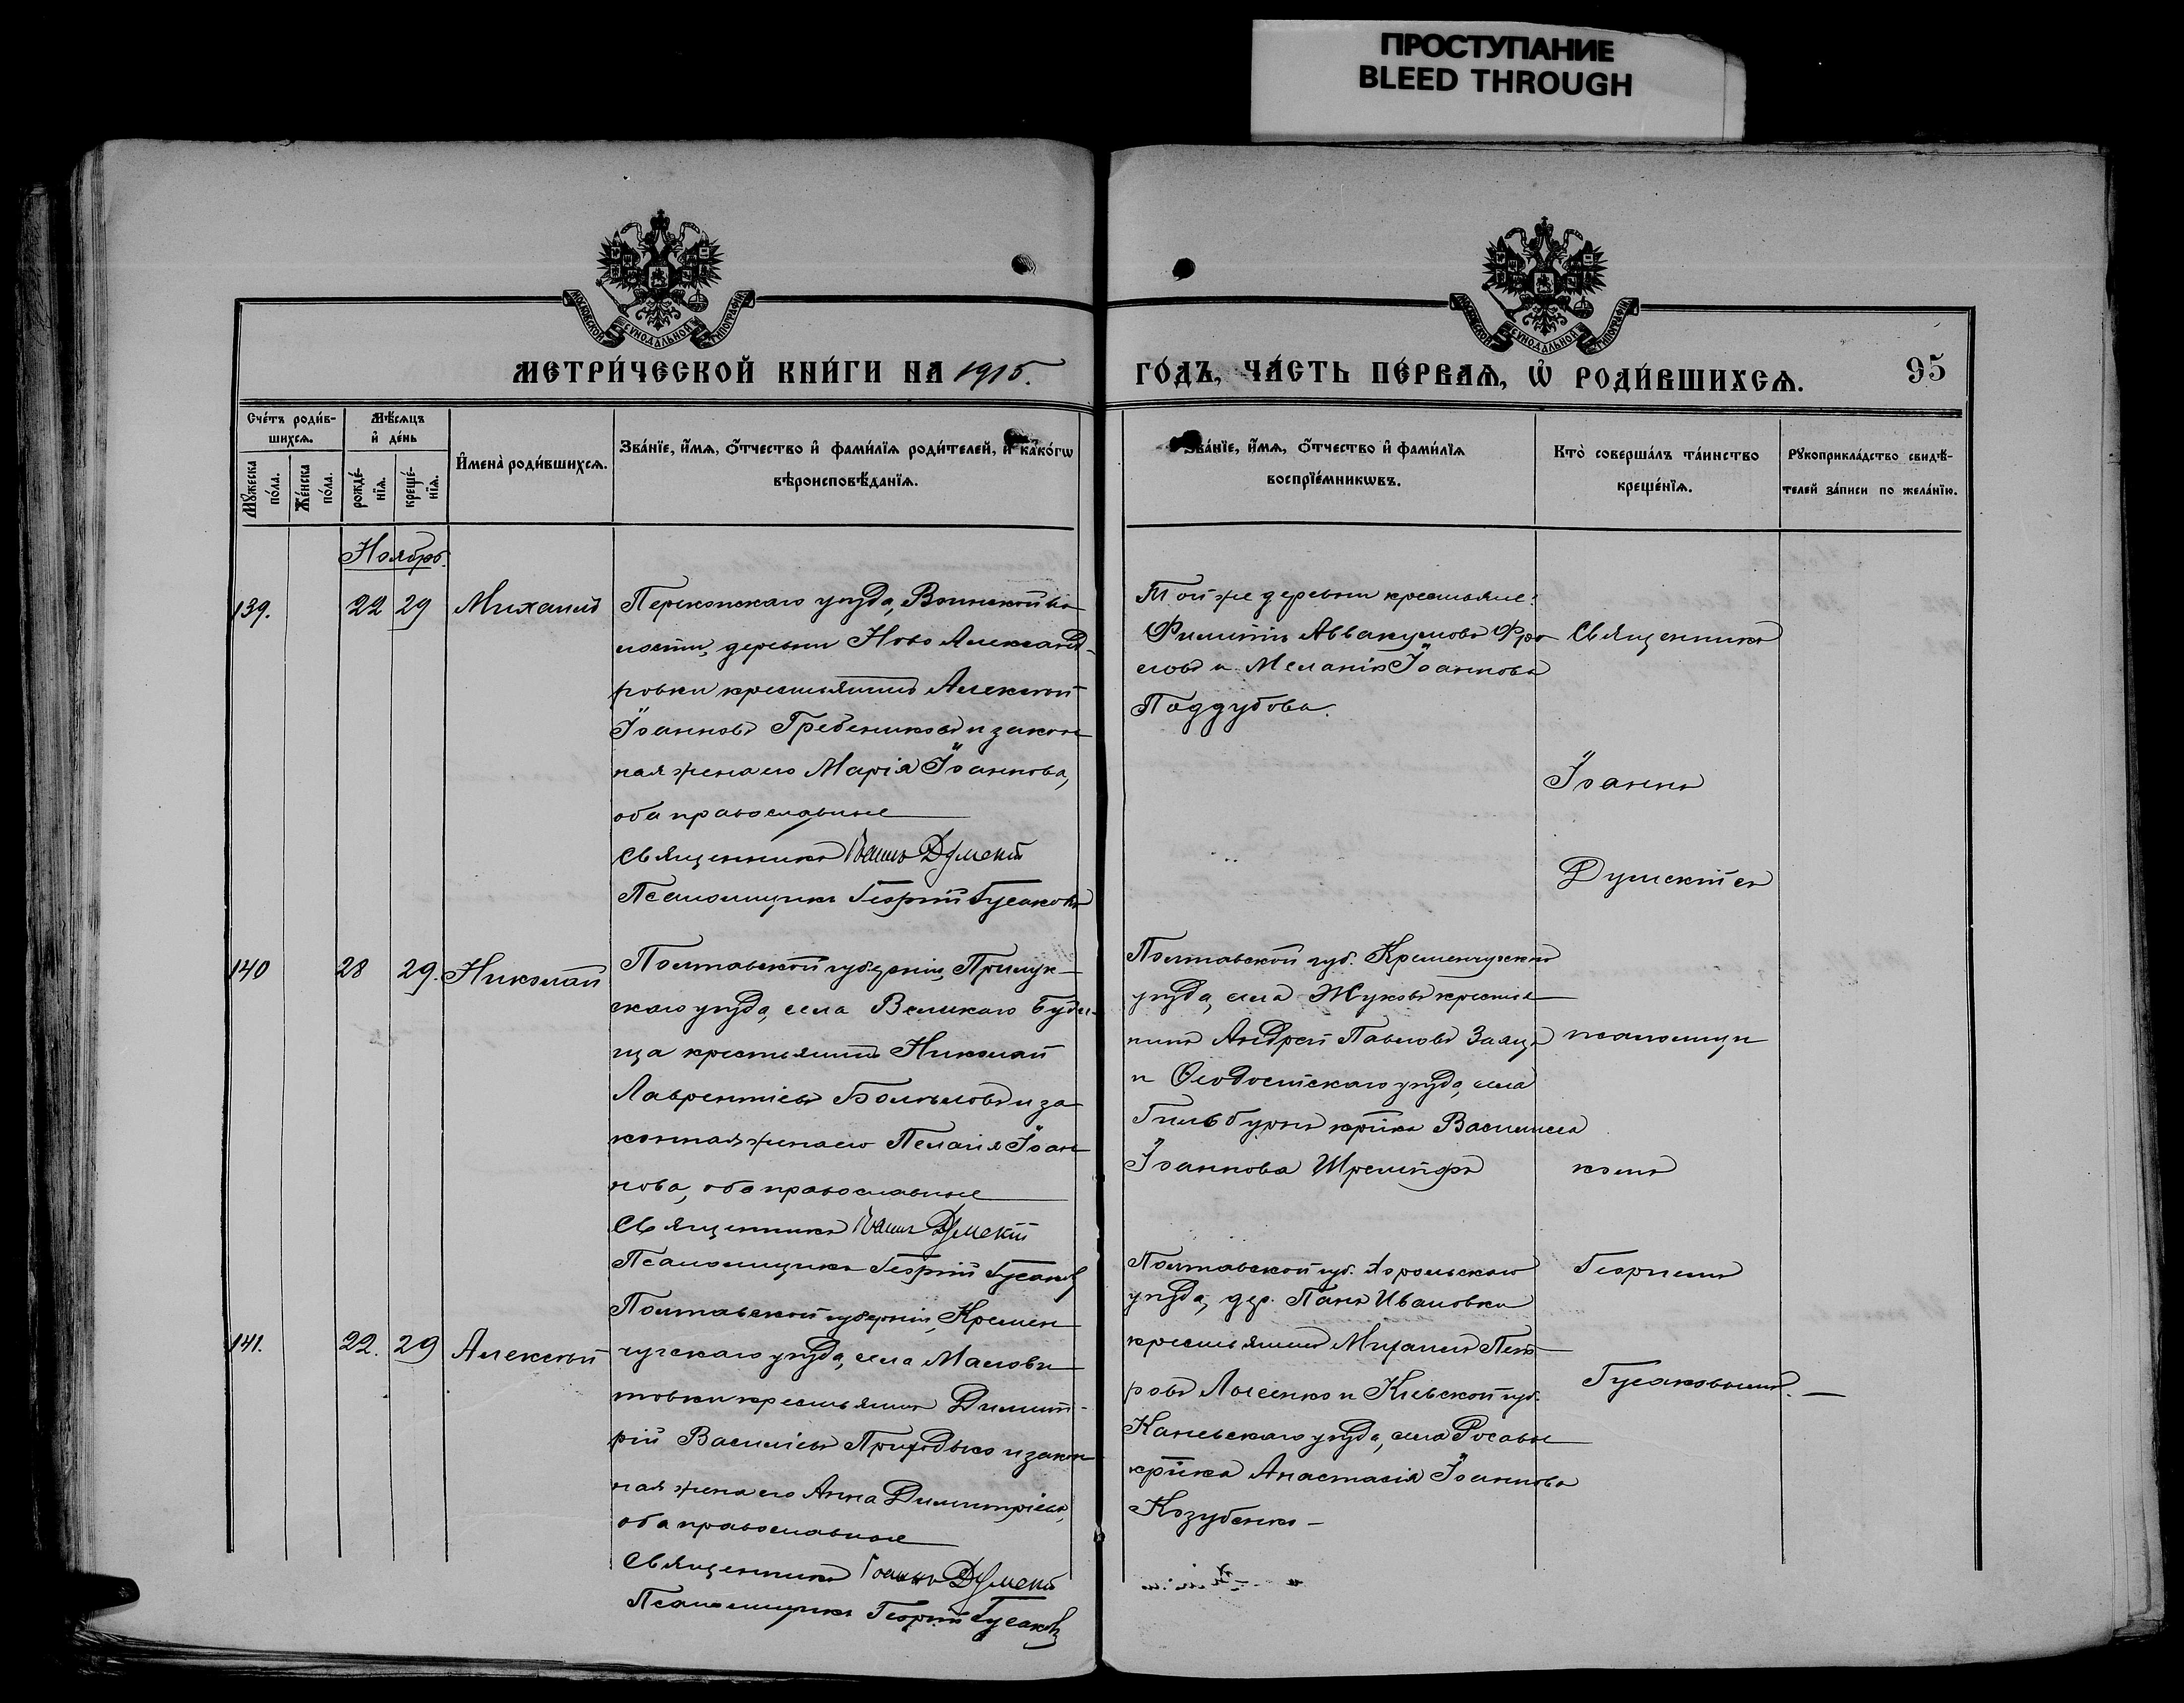 ПРОСТУПАНИЕ
BLEED THROUGH
МОСКОВСКОЙ СѴНОДАЛЬНОЙ ТИПОГРАФІИ
МОСКОВСКОЙ СѴНОДАЛЬНОЙ ТИПОГРАФІИ
МЕТРИ́ЧЕСКОЙ КНИ́ГИ НА 1915.
ГО́ДЪ, ЧА́СТЬ ПЕ́РВАѦ, Ѡ҆ РОДИ́ВШИХСѦ.
95
Сче́тъ роди́в-
шихсѧ.
Мꙋ́жеска по́ла.
Же́нска по́ла.
Мѣ́сѧцъ
и҆ де́нь
рожде́-нїѧ.
креще́-нїѧ.
И҆мена̀ роди́вшихсѧ.
Зва́нїе, и҆́мѧ, ѻ҆́тчество и҆ фами́лїѧ роди́телей, и҆ како́гѡ
вѣроисповѣ́данїѧ.
Зва́нїе, и҆́мѧ, ѻ҆́тчество и҆ фами́лїѧ
воспрїе́мникѡвъ.
Кто̀ соверша́лъ та́инство
креще́нїѧ.
Рꙋкоприкла́дство свидѣ́-
телей за́писи по жела́нїю.
Ноябрь.
139.
22 29
Михаилъ
Перекопскаго уѣзда, Воинской во
лости, деревни Ново Александ-
ровки крестьянинъ Алексѣй
Іоанновъ Гребениковъ и закон
ная жена его Марія Іоаннова,
оба православные
Священникъ Іоаннъ Думскій
Псаломщикъ Георгій Гусаковъ
Той же деревни крестьяне:
Филиппъ Аввакумовъ Фро
ловъ и Меланія Іоаннова
Поддубова.
Священникъ
Іоаннъ
Думскій съ
140
28 29.
Николай
Полтавской губерніи, Прилук-
скаго уѣзда, села Великаго Буди-
ща крестьянинъ Николай
Лаврентіевъ и за
конная жена его Пелагія Іоан
нова, оба православные
Священникъ Іоаннъ Думскій
Псаломщикъ Георгій Гусаковъ
Полтавской губ. Кременчугскаго
уѣзда, села Жуковъ крестья
нинъ Андрей Павловъ Заяцъ
и Ѳеодосійскаго уѣзда, села
кр-ка Василиса
Іоаннова
псаломщи
комъ
141.
22. 29
Алексѣй
Полтавской губерніи, Кремен
чугскаго уѣзда, села
крестьянинъ Димит-
рій Василіевъ Приходько и закон
ная жена его Анна Димитріева,
оба православные
Священникъ Іоаннъ Думскій
Псаломщикъ Георгій Гусаковъ
Полтавской губ. Хорольскаго
уѣзда, дер. Панъ Ивановки
крестьянинъ Михаилъ Пет-
ровъ и Кіевской губ.
Каневскаго уѣзда, села Росавы
кр-ка Анастасія Іоаннова
Козубенко –
Георгіемъ
Гусаковымъ. –